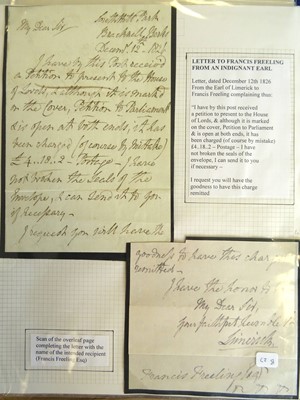 My Dear Sir
Park
Berks
Decemr. 12. 1826
I have by this Post received
a Petition to present to the House
of Lords, & although it is marked
on the Cover, Petition to Parliament
& is open at both ends, it has
been charged (of course by mistake)
£4..18..2 – Postage – I have
not broken the Seals of the
Envelope, & can send it to you
if necessary –
I request you will have the
LETTER TO FRANCIS FREELING
FROM AN INDIGNANT EARL
Letter, dated December 12th 1826
From the Earl of Limerick to
Francis Freeling complaining thus:
"I have by this post received
a petition to present to the House
of Lords, & although it is marked
on the cover, Petition to Parliament
& is open at both ends, it has
been charged (of course by mistake)
£4..18..2 – Postage – I have
not broken the seals of the
envelope, I can send it to you
if necessary –
I request you will have the
goodness to have this charge
remitted
goodness to have this charge
remitted –
I have the honor to
My Dear Sir,
your faithful
Limerick
Francis Freeling Esqr
Scan of the overleaf page
completing the letter with the
name of the intended recipient
(Francis Freeling Esq)